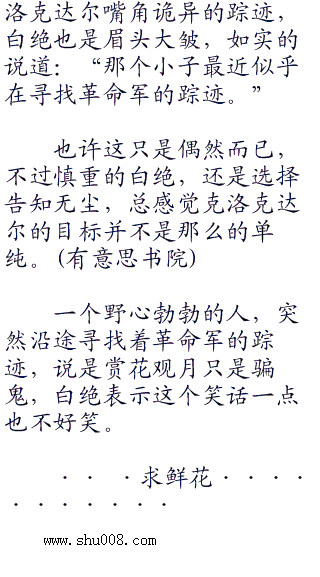 洛克达尔嘴角诡异的踪迹，
白绝也是眉头大皱，如实的
说道：“那个小子最近似乎
在寻找革命军的踪迹。”
也许这只是偶然而已，
不过慎重的白绝，还是选择
告知无尘，总感觉克洛克达
尔的目标并不是那么的单
纯。(有意思书院)
一个野心勃勃的人，突
然沿途寻找着革命军的踪
迹，说是赏花观月只是骗
鬼，白绝表示这个笑话一点
也不好笑。
· · ·求鲜花· · · ·
· · · · · · ·
www.shu008.com